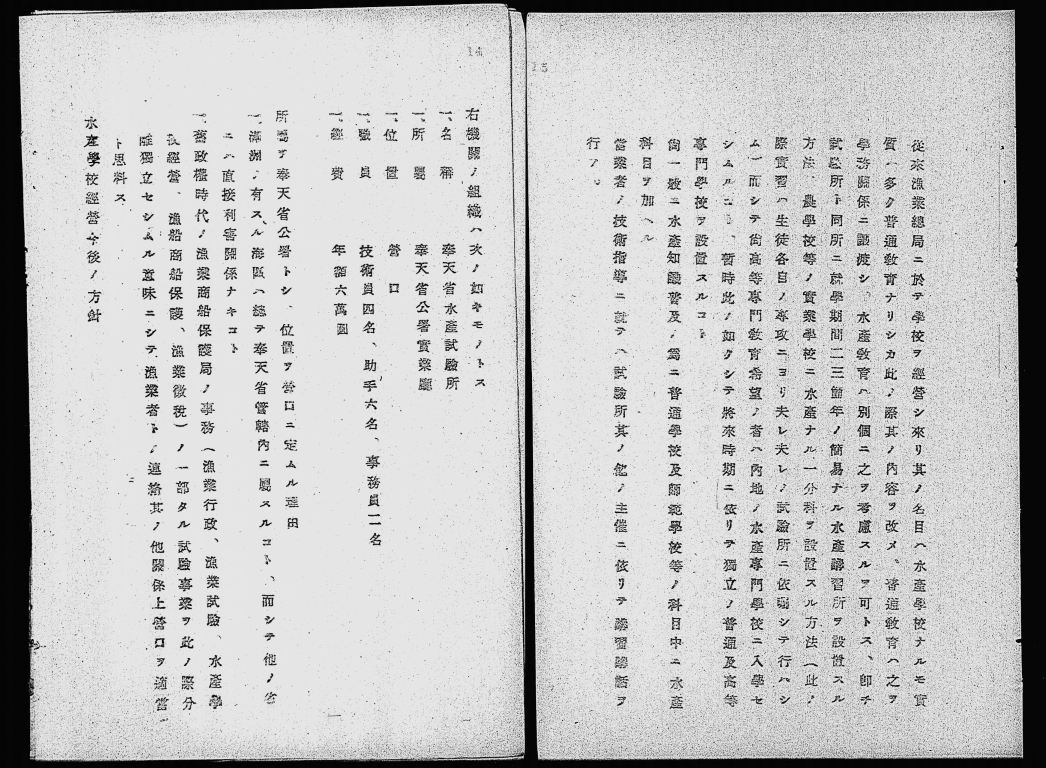 14
右機關ノ組織ハ次ノ如キモノトス
一、名稱 奉天省水產試驗所
一、所屬 奉天省公署實業廳
一、位置 營口
一、職員 技術員四名、助手六名、事務員二名
一、經費 年額六萬圓
所屬ヲ奉天省公署トシ、位置ヲ營口ニ定ムル理由
一、滿洲ノ有スル海區ハ總テ奉天省管轄內ニ屬スルコト、而シテ他ノ省
ニハ直接利害關係ナキコト
一、舊政權時代ノ漁業商船保護局ノ事務（漁業行政、漁業試驗、水產學
校經營、漁船商船保護、漁業徵稅）ノ一部タル試驗事業ヲ此ノ際分
離獨立セシムル意味ニシテ漁業者トノ連絡其ノ他關係上營口ヲ適當
ト思料ス
水產學校經營今後ノ方針
15
從來漁業總局ニ於テ學校ヲ經營シ來リ其ノ名目ハ水產學校ナルモ實
質ハ多ク普通敎育ナリシカ此ノ際其ノ內容ヲ改メ、普通敎育ハ之ヲ
學務關係ニ讓渡シ、水產敎育ハ別個ニ之ヲ考慮スルヲ可トス、卽チ
試驗所ト同所ニ就學期間二三箇年ノ簡易ナル水產講習所ヲ設置スル
方法、農學校等ノ實業學校ニ水產ナル一分科ヲ設置スル方法（此ノ
際實習ハ生徒各自ノ專攻ニヨリ夫レ夫レノ試驗所ニ依囑シテ行ハシ
ム）而シテ尙高等專門敎育希望ノ者ハ內地ノ水產專門學校ニ入學セ
シムルコト、暫時此ノ如クシテ將來時期ニ依リテ獨立ノ普通及高等
專門學校ヲ設置スルコト
尙一般ニ水產知識普及ノ爲ニ普通學校及師範學校等ノ科目中ニ水產
科目ヲ加ヘル
當業者ノ技術指導ニ就テハ試驗所其ノ他ノ主催ニ依リテ講習講話ヲ
行フ。